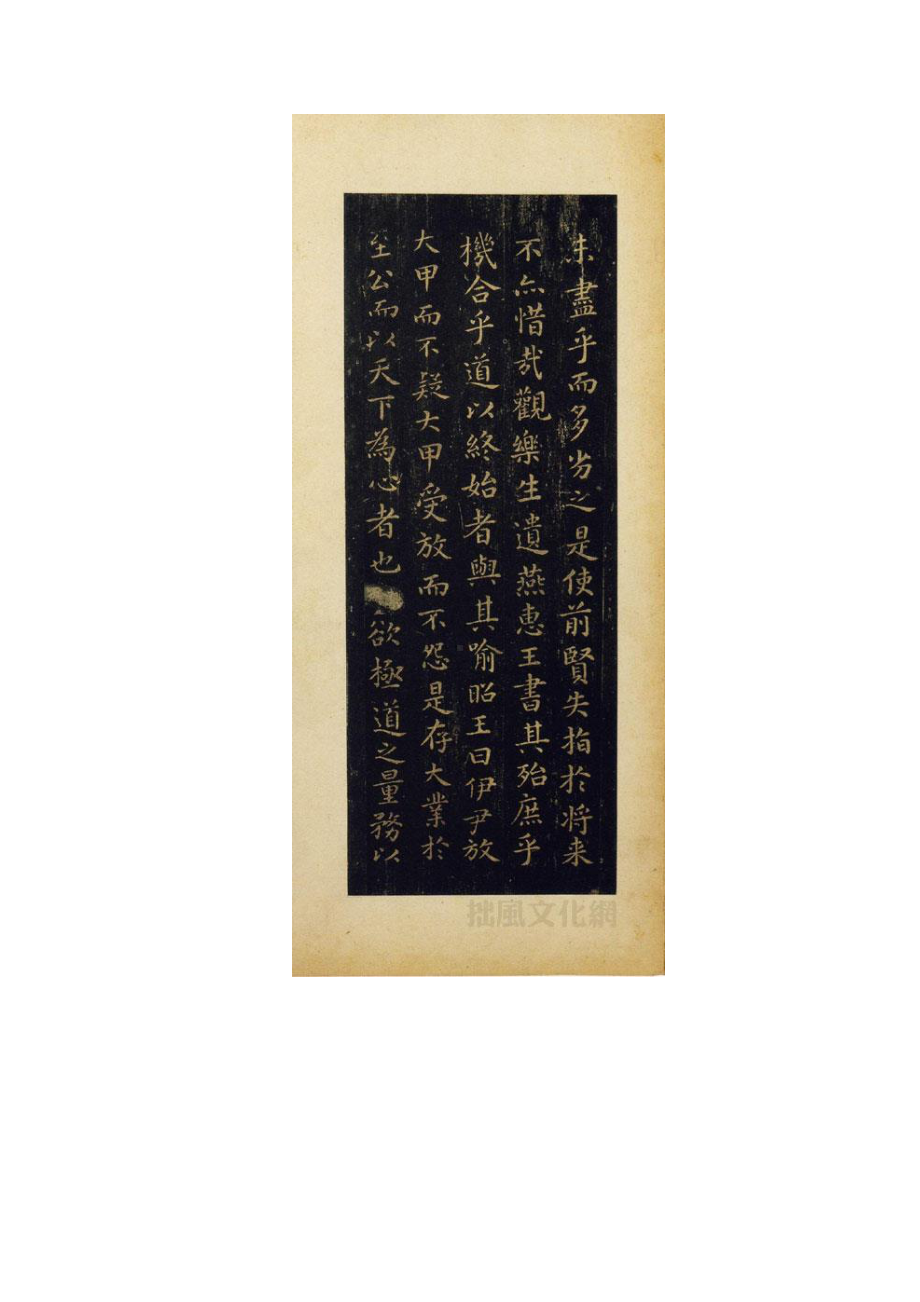 未盡乎而多劣之是使前賢失指於将来
不亦惜哉觀樂生遺燕惠王書其殆庶乎
機合乎道以終始者與其喻昭王曰伊尹放
大甲而不疑大甲受放而不怨是存大業於
至公而以天下為心者也欲極道之量務以
拙風文化網